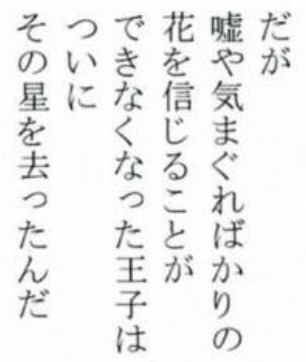 だが
嘘や気まぐればかりの
花を信じることが
できなくなった王子は
ついに
その星を去ったんだ